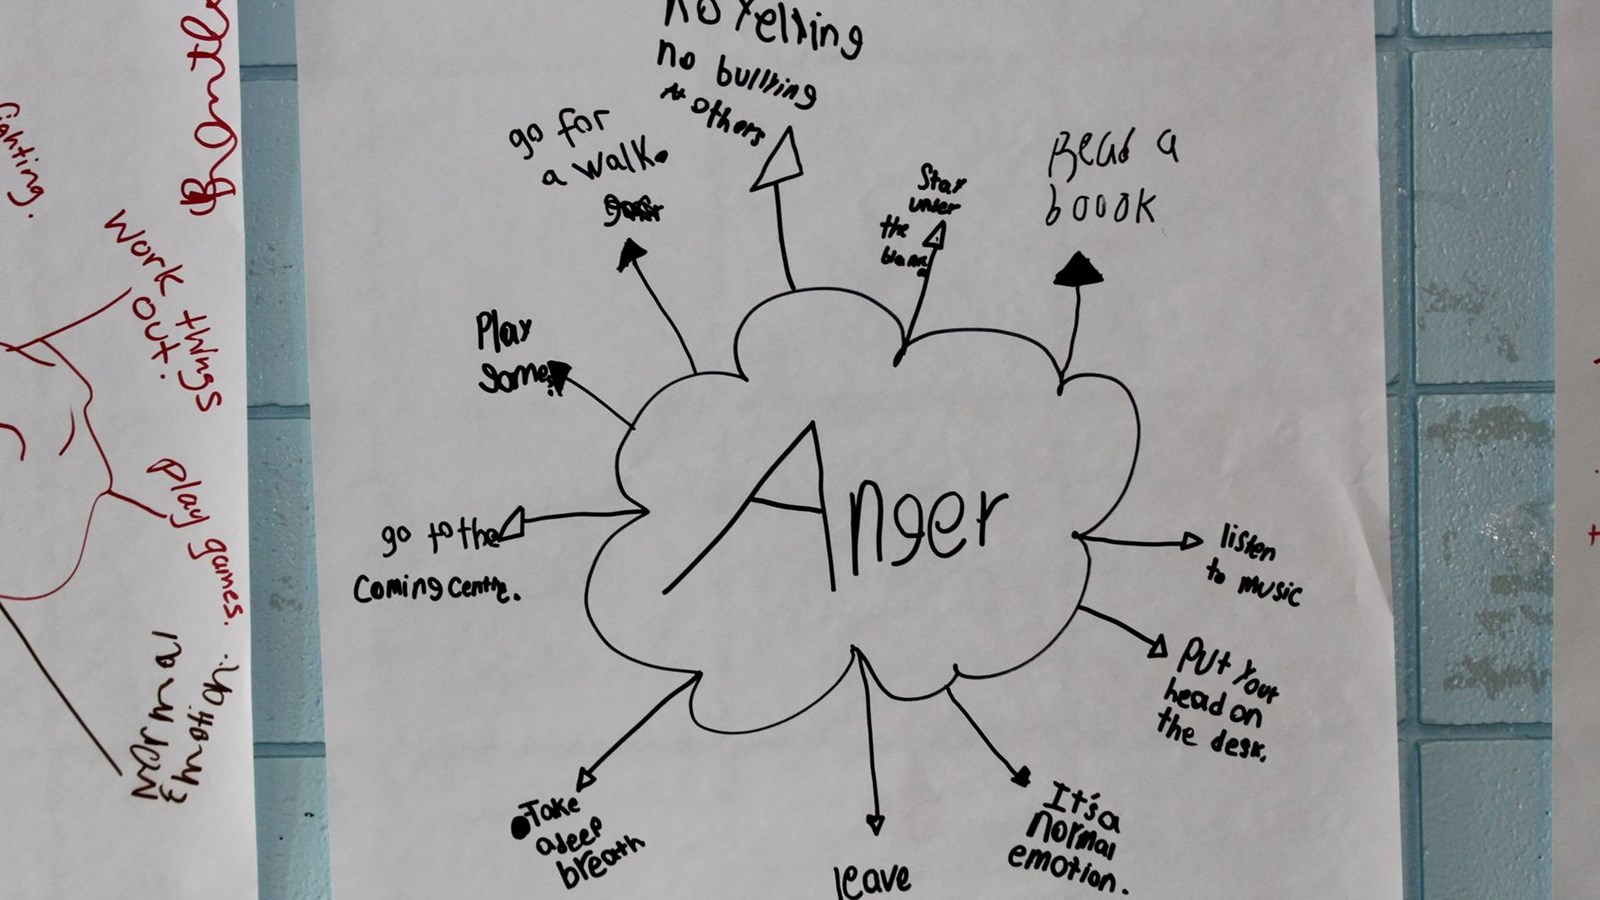 fighting.
Work things
out.
Play games.
Normal
Emotion.
no Yelling
no bullying
at others
go for
a walk.
Stay
under
the
Read a
boook
Play
some
Anger
go to the
Coming Centre.
listen
to music
Put your
head on
the desk.
Take
a deep
breath
leave
It's a
normal
emotion.